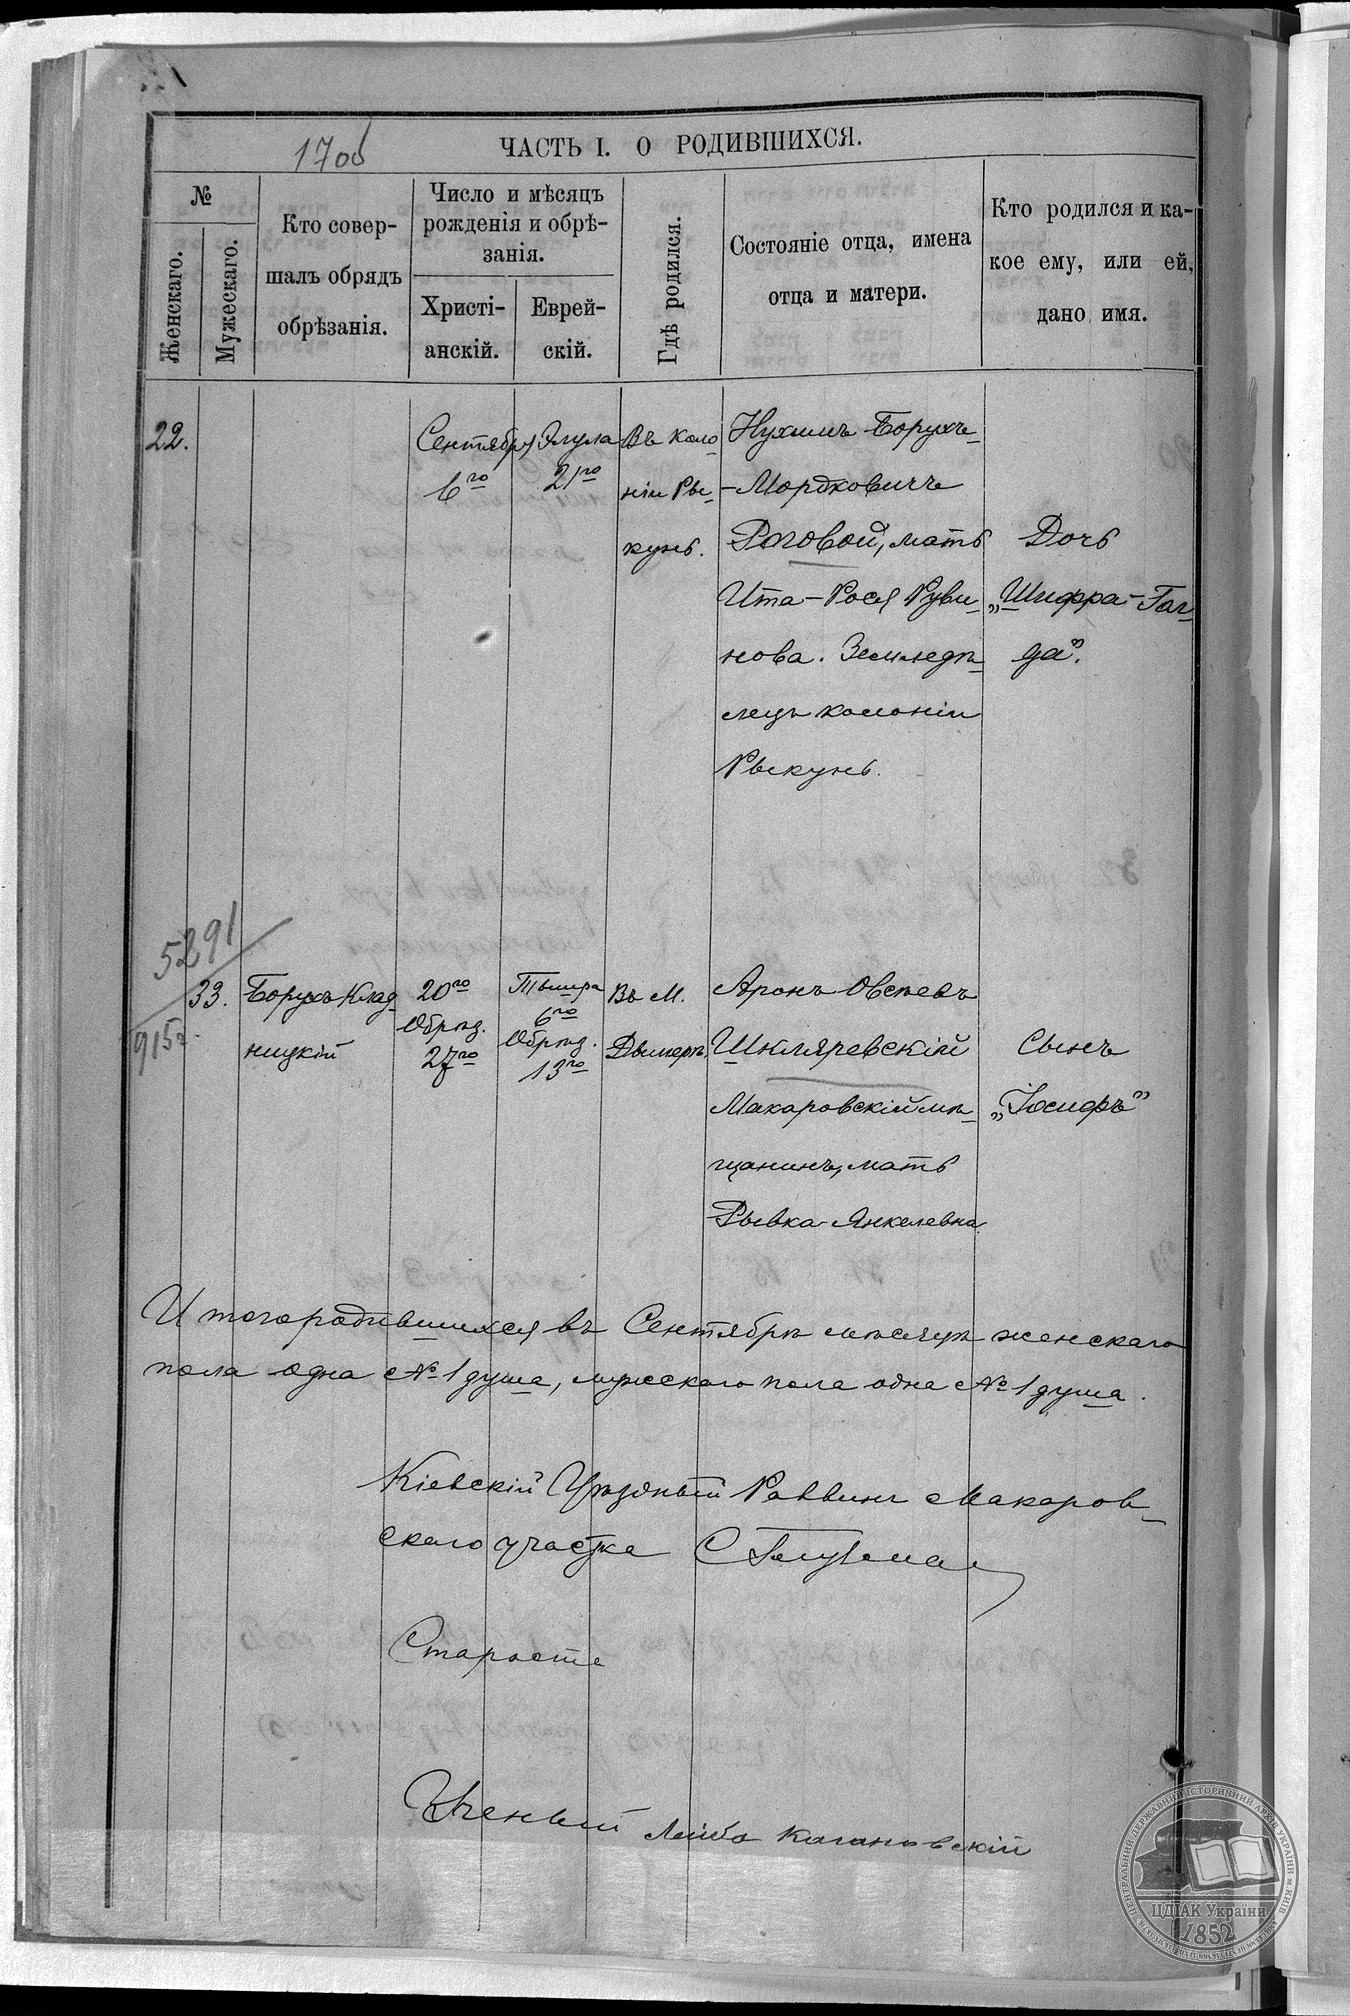 170об
ЧАСТЬ I. О РОДИВШИХСЯ.
№
Женскаго.
Мужескаго.
Кто совер-
шалъ обрядъ
обрѣзанія.
Число и мѣсяцъ
рожденія и обрѣ-
занія.
Христі-
анскій.
Еврей-
скій.
Гдѣ родился.
Состояніе отца, имена
отца и матери.
Кто родился и ка-
кое ему, или ей,
дано имя.
22.
Сентября
6го
Элула
21го
Въ коло-
ніи Ры-
кунь.
Нухимъ-Борухъ-
-Мордковичъ
Роговой, мать
Ита-Рося Руви-
нова. Земледѣ-
лецъ колоніи
Рыкунь.
Дочь
„Шифра-Гол-
да".
5291
9152
33.
Борухъ Клад-
ницкій
20го
Обрѣз.
27го
Тышра
6го
Обрѣз.
13го
Въ М.
Дымерѣ
Аронъ Овсѣевъ
Шкляревскій
Макаровскій мѣ-
щанинъ, мать
Рывка-Янкелевна.
Сынъ
„Іосифъ"
Итого родившихся въ Сентябрѣ мѣсяцѣ женскаго
пола одна №1 душа, мужескаго пола одна №1 душа.
Кіевскій Уѣздный Раввинъ Макаров-
скаго участка
Староста
Ученый Лейба Кагановскій
ЦЕНТРАЛЬНИЙ ДЕРЖАВНИЙ ІСТОРИЧНИЙ АРХІВ УКРАЇНИ м. КИЇВ
ЦДІАК України
1852